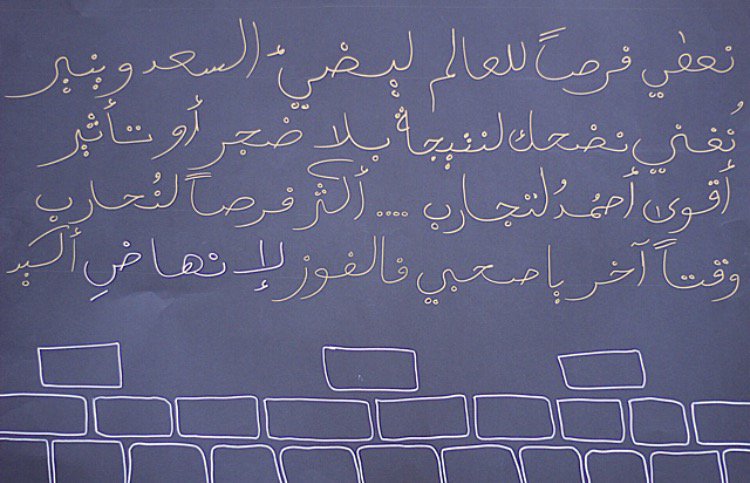 نعطي فرصاً للعالم ليضيئ السعد وينير
نُغني نضحك لنتيجة بلا ضجر أو تأثير
أقوى أحمُدُ لتجارب .... أكثر فرصاً لنُحارب
وقتاً آخر يا صحبي فالفوز لإنهاضِ أكيد